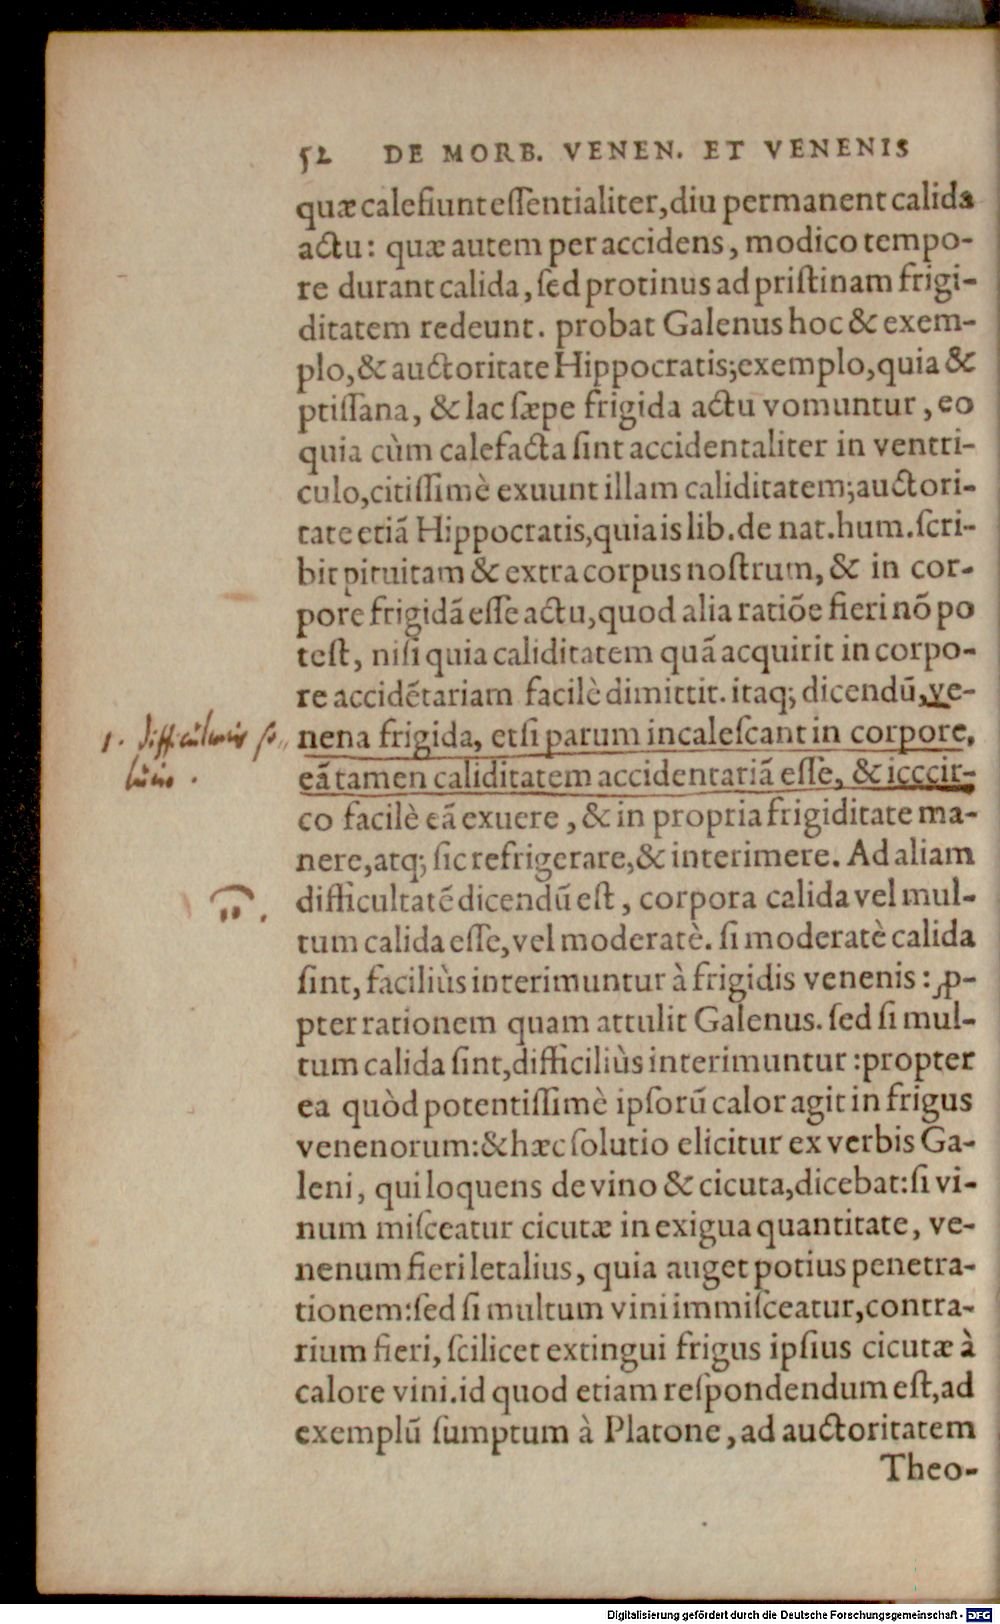 52 DE MORB. VENEN. ET VENENIS
quæ calefiunt eſſentialiter, diu permanent calida
actu: quæ autem per accidens, modico tempo-
re durant calida, ſed protinus ad priſtinam frigi-
ditatem redeunt. probat Galenus hoc & exem-
plo, & auctoritate Hippocratis; exemplo, quia &
ptiſſana, & lac ſæpe frigida actu vomuntur, eo
quia cùm calefacta ſint accidentaliter in ventri-
culo, citiſſimè exuunt illam caliditatem; auctori-
tate etiã Hippocratis, quia is lib. de nat. hum. ſcri-
bit pituitam & extra corpus noſtrum, & in cor-
pore frigidã eſſe actu, quod alia ratiõe fieri nõ po
teſt, niſi quia caliditatem quã acquirit in corpo-
re accidẽtariam facilè dimittit. itaq; dicendũ, ve-
1. difficultatis so-
nena frigida, etſi parum incaleſcant in corpore,
lutio.
eã tamen caliditatem accidentariã eſſe, & icccir-
co facilè eã exuere, & in propria frigiditate ma-
nere, atq; ſic refrigerare, & interimere. Ad aliam
difficultatẽ dicendũ eſt, corpora calida vel mul-
tum calida eſſe, vel moderatè. ſi moderatè calida
ſint, faciliùs interimuntur à frigidis venenis: ꝓ-
pter rationem quam attulit Galenus. ſed ſi mul-
tum calida ſint, difficiliùs interimuntur: propter
ea quòd potentiſſimè ipſorũ calor agit in frigus
venenorum: & hæc ſolutio elicitur ex verbis Ga-
leni, qui loquens de vino & cicuta, dicebat: ſi vi-
num miſceatur cicutæ in exigua quantitate, ve-
nenum fieri letalius, quia auget potius penetra-
tionem: ſed ſi multum vini immiſceatur, contra-
rium fieri, ſcilicet extingui frigus ipſius cicutæ à
calore vini. id quod etiam reſpondendum eſt, ad
exemplũ ſumptum à Platone, ad auctoritatem
Theo-
Digitalisierung gefördert durch die Deutsche Forschungsgemeinschaft - DFG